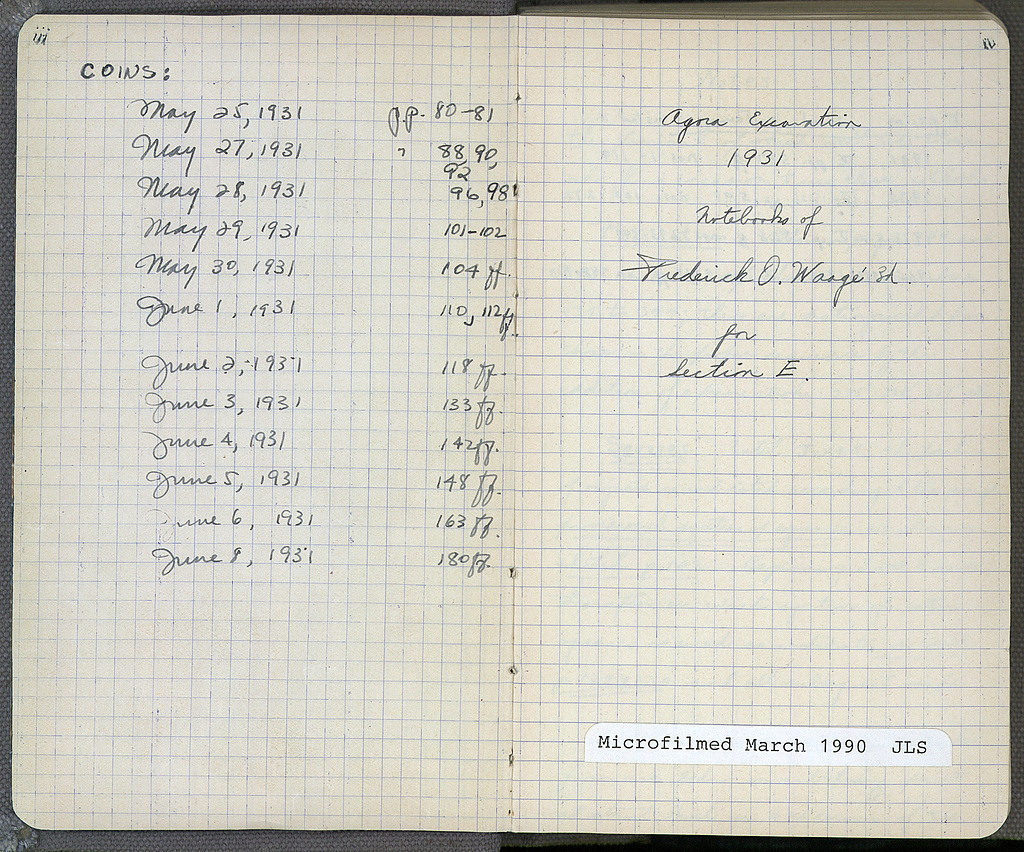 iii
COINS:
May 25, 1931 p.p. 80-81
May 27, 1931 " 88, 90,
92
May 28, 1931 96, 98
May 29, 1931 101-102
May 30, 1931 104 ff.
June 1, 1931 110, 112 ff.
June 2, 1931 118 ff.
June 3, 1931 133 ff.
June 4, 1931 142 ff.
June 5, 1931 148 ff.
June 6, 1931 163 ff.
June 8, 1931 180 ff.
iv
Agora Excavation
1931
Notebooks of
Frederick O. Waagé 3d.
for
Section E.
Microfilmed March 1990 JLS